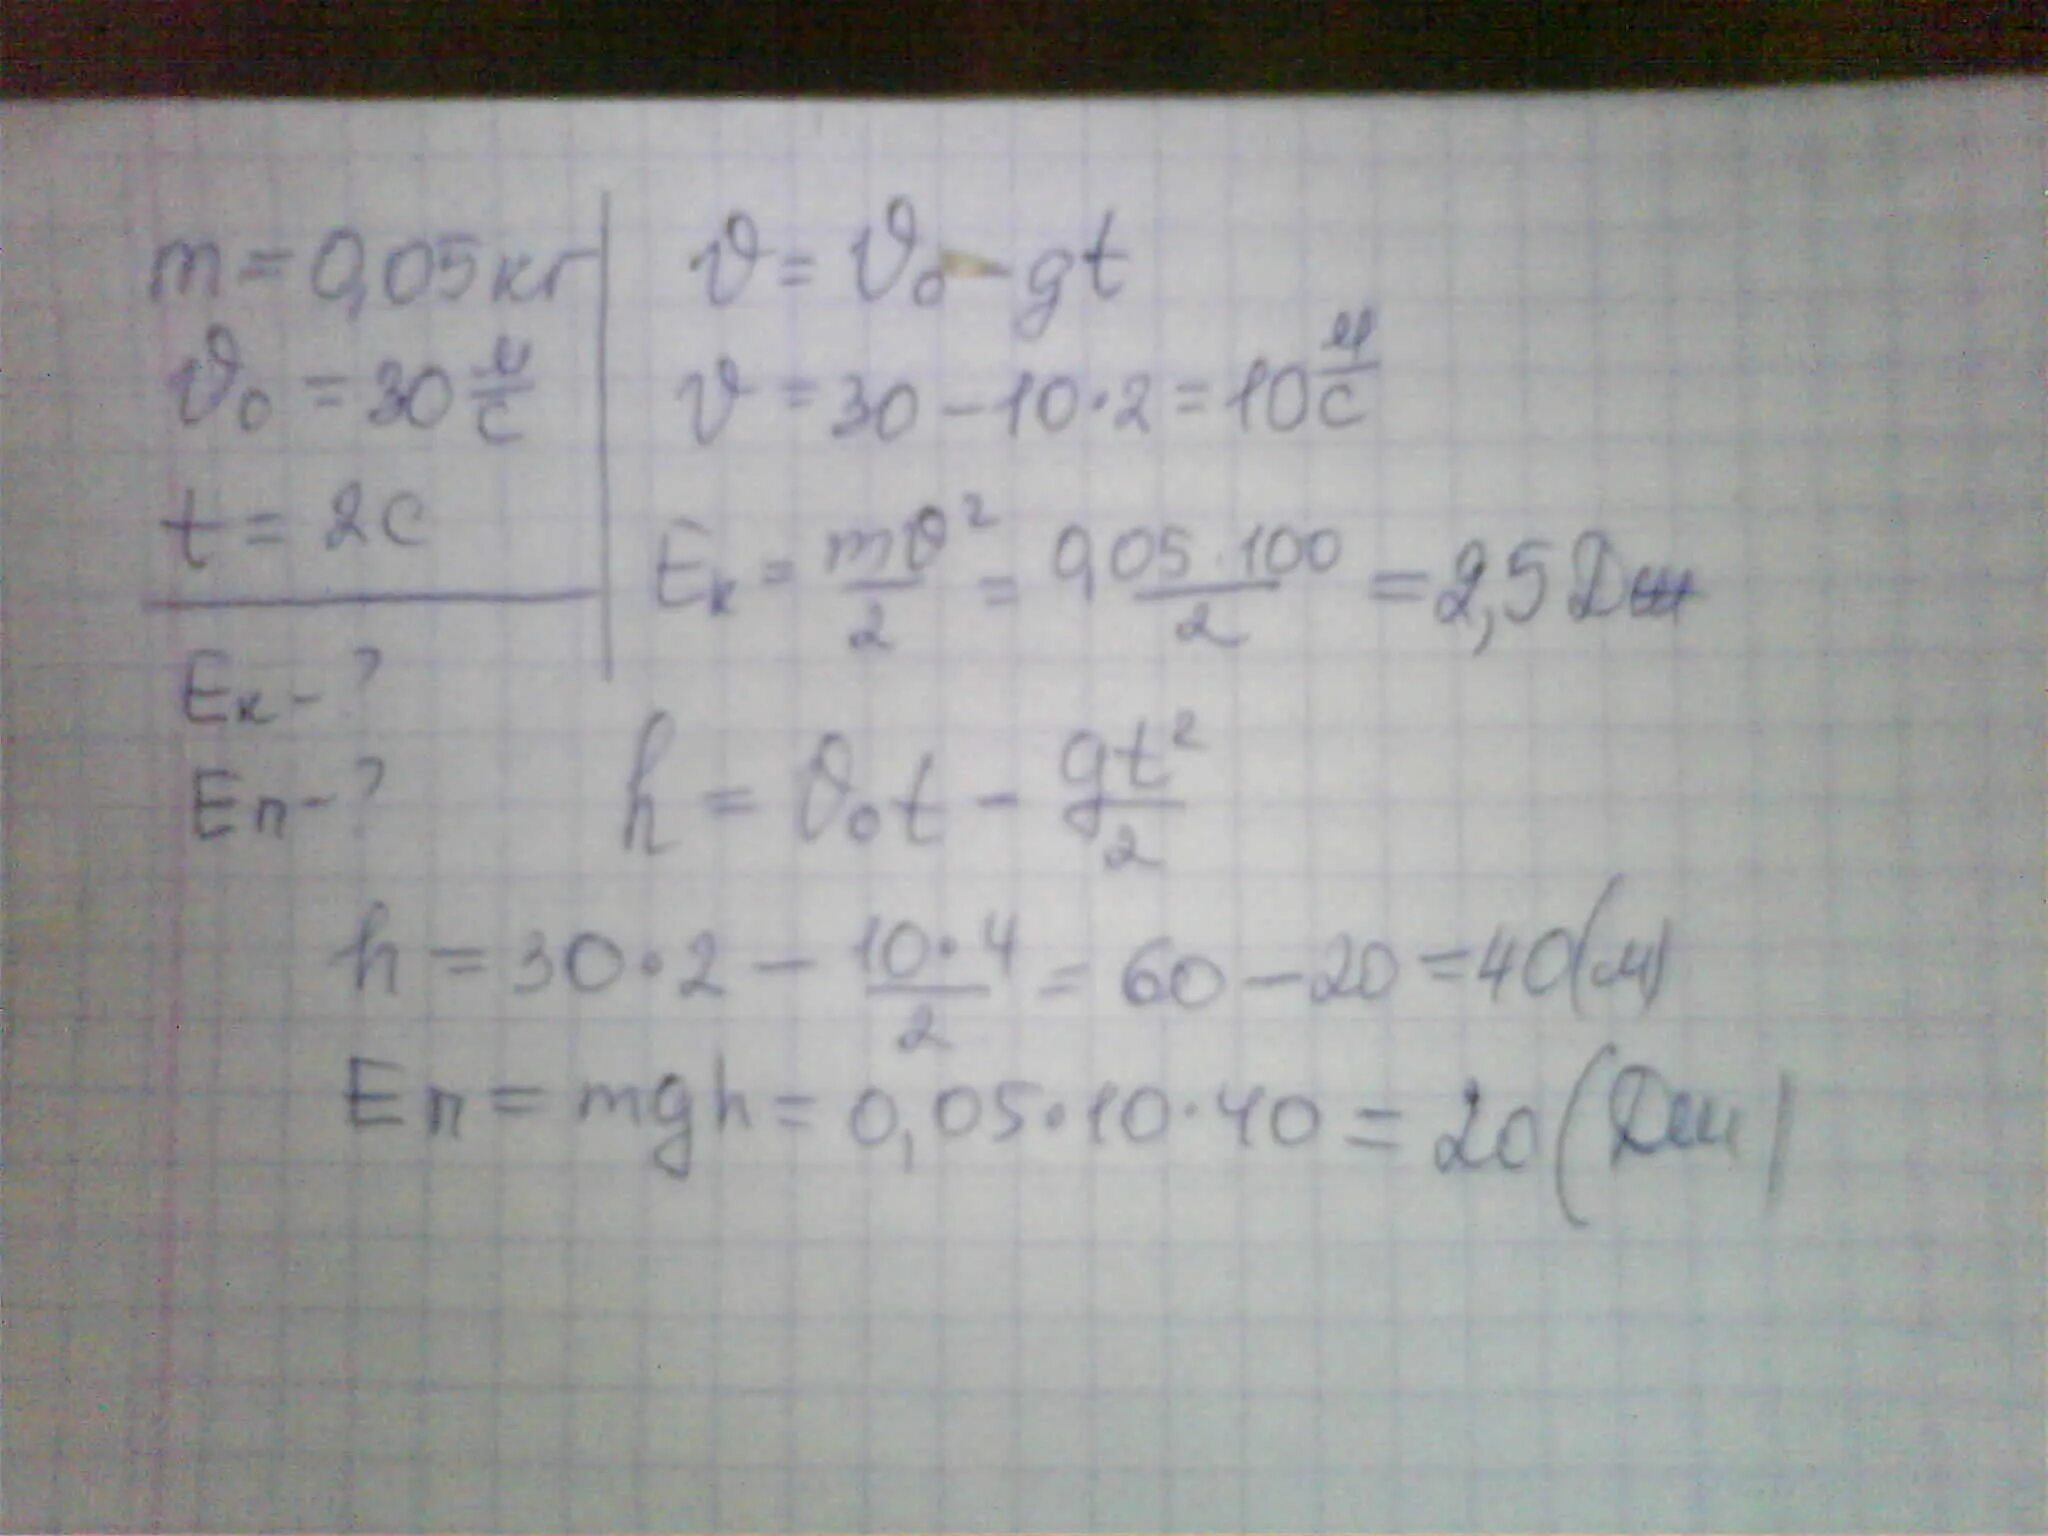 m = 0,05 кг
υ₀ = 30 м/с
t = 2 с
Eк - ?
Eп - ?
υ = υ₀ - gt
υ = 30 - 10·2 = 10 м/с
Eк = mυ²/2 = 0,05·100/2 = 2,5 Дж
h = υ₀t - gt²/2
h = 30·2 - 10·4/2 = 60 - 20 = 40 (м)
Eп = mgh = 0,05·10·40 = 20 (Дж)